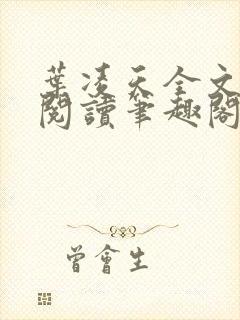 葉凌天全文
閱讀筆趣閣
曾會生